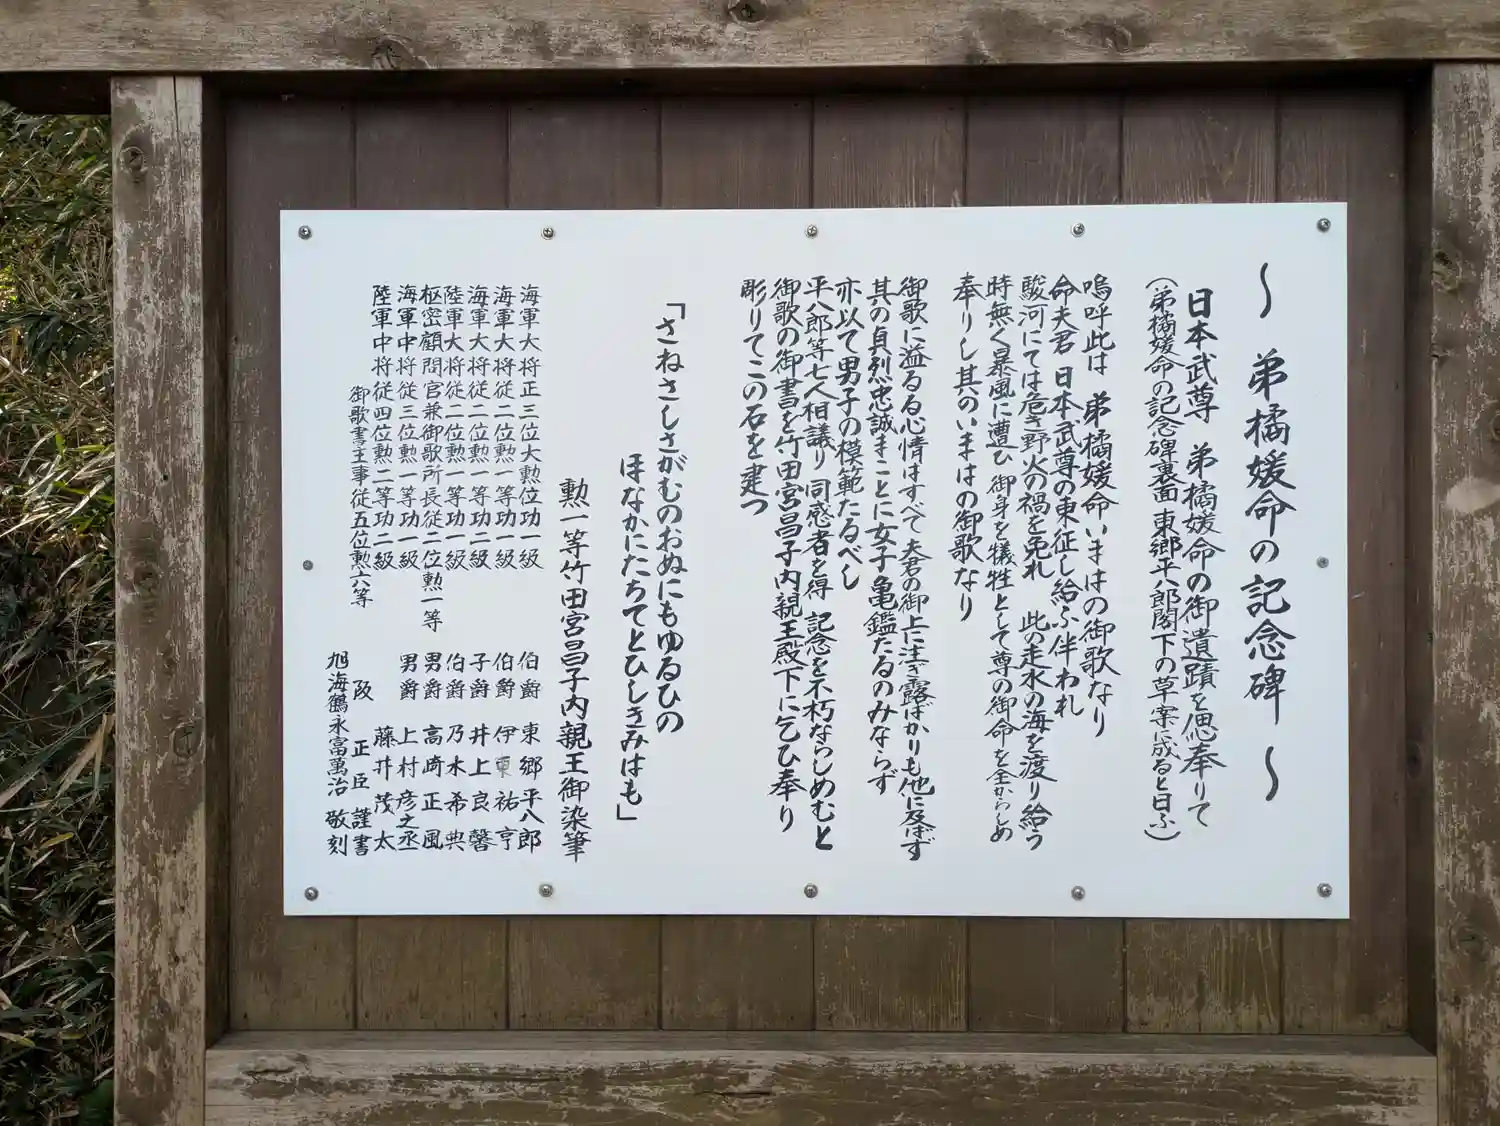 ～ 弟橘媛命の記念碑 ～
日本武尊 弟橘媛命の御遺蹟を偲奉りて
(弟橘媛命の記念碑裏面 東郷平八郎閣下の草案に成ると曰ふ)
嗚呼此は 弟橘媛命いまはの御歌なり
命夫君 日本武尊の東征し給ふ伴われ
駿河にては危き野火の禍を免れ 此の走水の海を渡り給う
時無く暴風に遭ひ 御身を犠牲として尊の御命を全からしめ
奉りし其のいまはの御歌なり
御歌に溢るる心情はすべて夫君の御上に注ぎ露ばかりも他に及ばず
其の貞烈忠誠まことに女子亀鑑たるのみならず
亦以て男子の模範たるべし
平八郎等七人相議り 同感者を得 記念を不朽ならしめむと
御歌の御書を竹田宮昌子内親王殿下に乞ひ奉り
彫りてこの石を建つ
「さねさしさがむのおぬにもゆるひの
ほなかにたちてとひしきみはも」
勲一等竹田宮昌子内親王御染筆
海軍大将正三位大勲位功一級 伯爵 東郷平八郎
海軍大将従二位勲一等功一級 伯爵 伊東祐亨
海軍大将従二位勲一等功二級 子爵 井上良馨
陸軍大将従二位勲一等功一級 伯爵 乃木希典
枢密顧問官兼御歌所長従二位勲一等 男爵 高崎正風
海軍中将従三位勲一等功一級 男爵 上村彦之丞
陸軍中将従四位勲二等功二級 藤井茂太
御歌書主事従五位勲六等 阪 正臣 謹書
旭海鶴永富萬治 敬刻